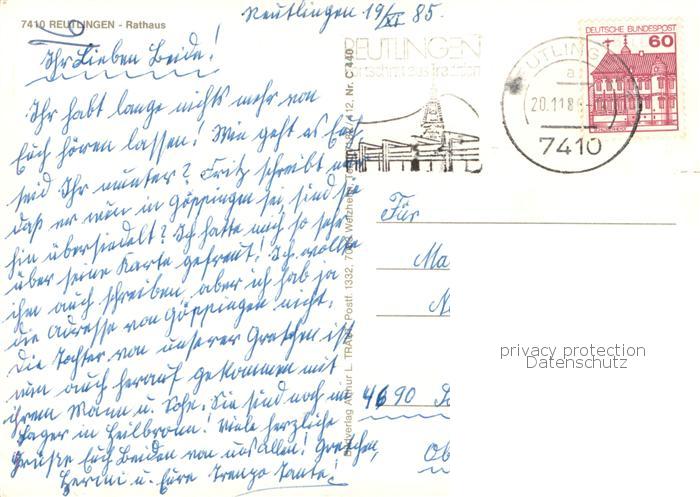 7410 REUTLINGEN - Rathaus
Reutlingen 19/XI 85.
Ihr Lieben Beide!
Ihr habt lange nichts mehr von
Euch hören lassen! Wie geht es Euch
seid Ihr munter? Fritz schreibt mir
daß er nun in Göppingen sei sind sie
hin übersiedelt? Ich hatte mich so sehr
über seine Karte gefreut! Ich wollte
ihm auch schreiben aber ich hab ja
die Adresse von Göppingen nicht.
Die Tochter von unserer Gretchen ist
nun auch herauf gekommen mit
ihrem Mann u. Sohn. Sie sind noch im
Lager in Heilbronn! Viele herzliche
Grüße Euch Beiden von uns Allen! Gretchen,
u. Eure Tante!
REUTLINGEN
DEUTSCHE BUNDESPOST
60
20.11.8
7410
Für
Ma
4690
Ob
privacy protection
Datenschutz